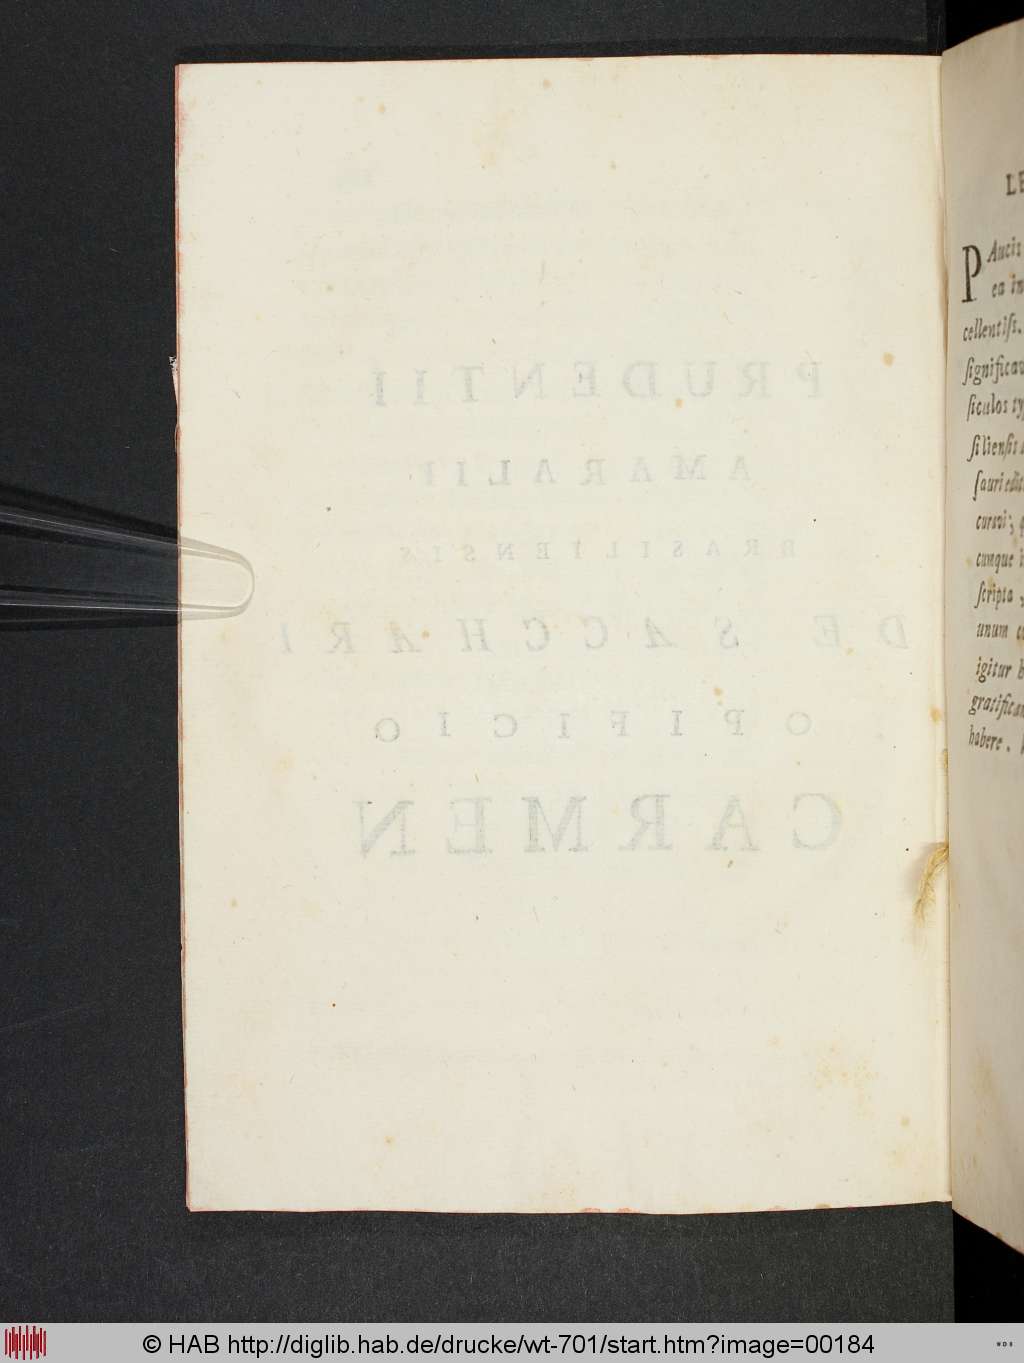 PRUDENTII
AMARALII
BRASILIENSIS
DE SACCHARI
OPIFICIO
CARMEN
LE
PAucis
ea in
cellentiſs.
ſignificav
ſiculos ty
ſilienſis
ſauri edit
curavi;
cumque
ſcripta,
unum
igitur
gratifican
habere.
© HAB http://diglib.hab.de/drucke/wt-701/start.htm?image=00184